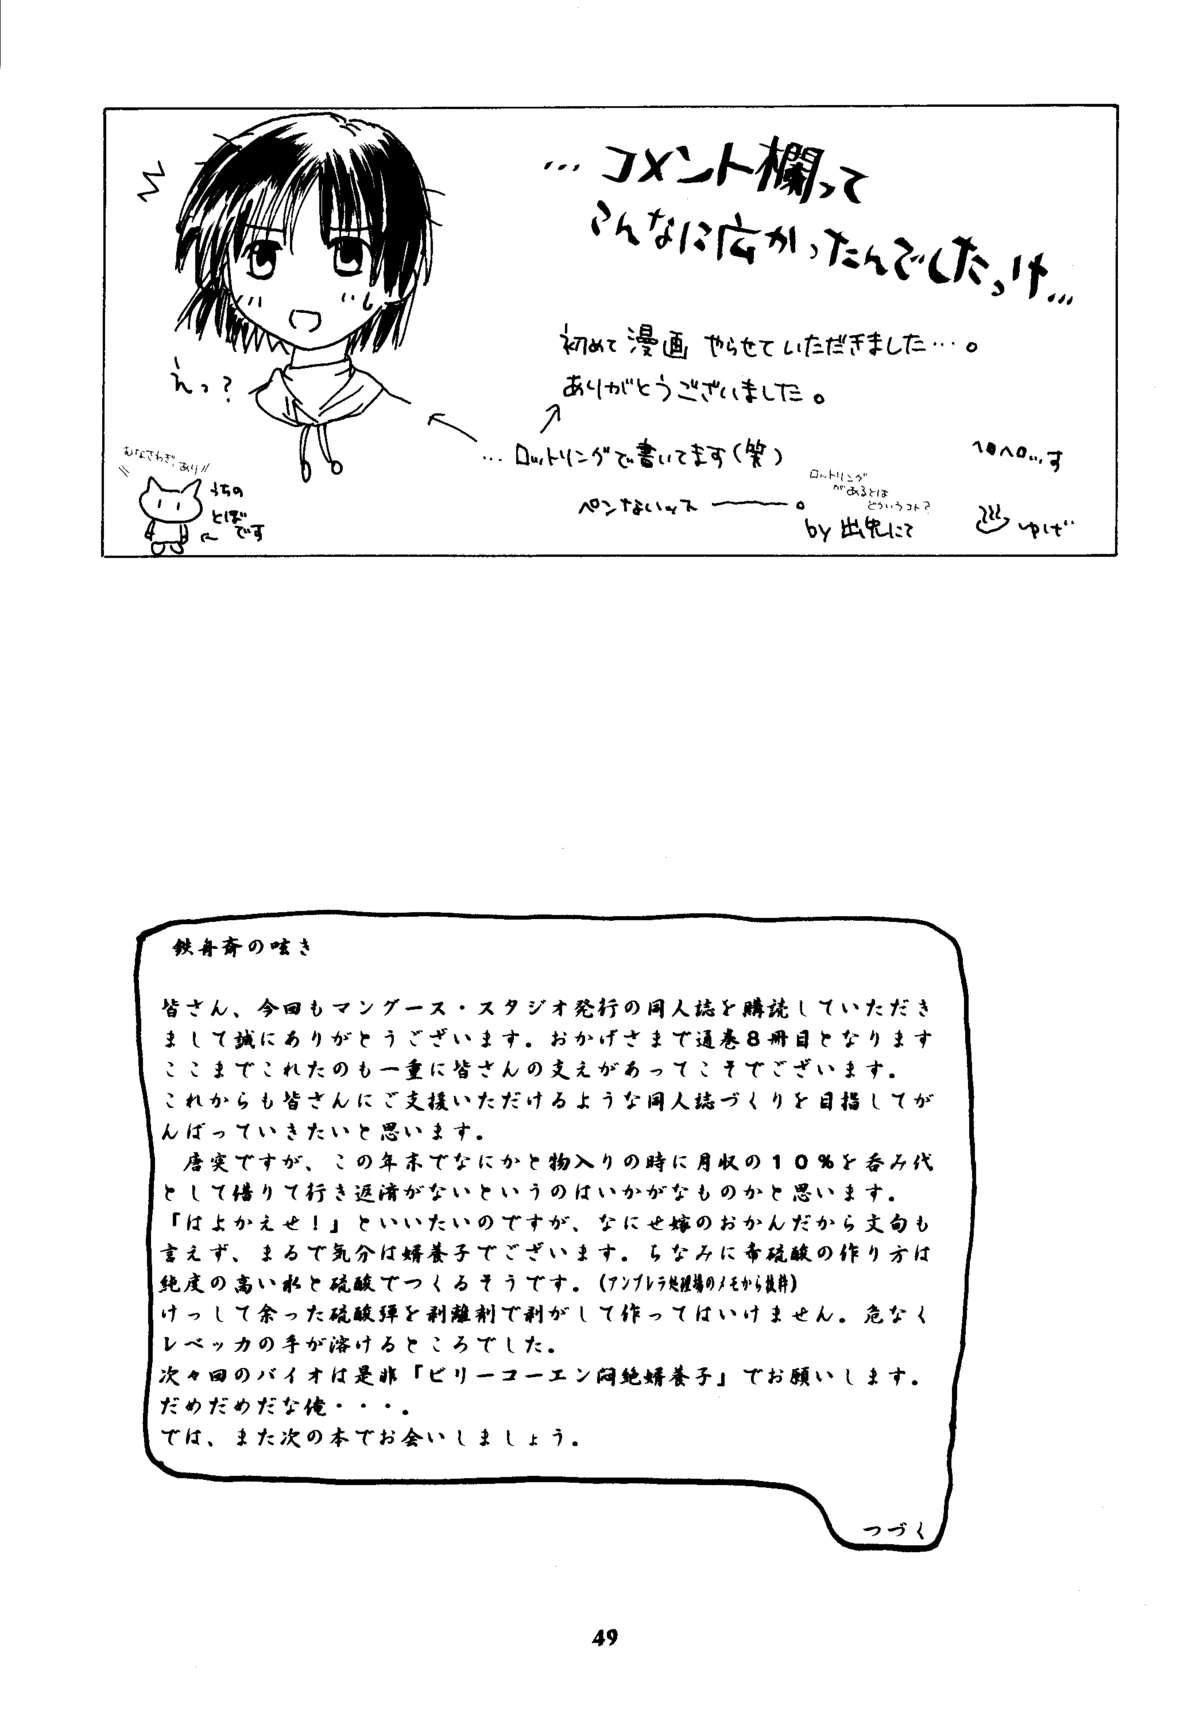 …コメント欄って
こんなに広かったんでしたっけ…
初めて漫画やらせていただきました…。
ありがとうございました。
…ロットリングで書いてます(笑)
ペンないッス━━━。
ロットリング
があるとは
どういうコト?
by 出先にて
ヘロヘロ…っす
ゆげ
えっ?
むなさわぎ、あり
うちの
とぼ
です
鉄舟斎の呟き
皆さん、今回もマングース・スタジオ発行の同人誌を購読していただき
まして誠にありがとうございます。おかげさまで通巻8冊目となります
ここまでこれたのも一重に皆さんの支えがあってこそでございます。
これからも皆さんにご支援いただけるような同人誌づくりを目指してが
んばっていきたいと思います。
唐突ですが、この年末でなにかと物入りの時に月収の10%を呑み代
として借りて行き返済がないというのはいかがなものかと思います。
「はよかえせ!」といいたいのですが、なにせ嫁のおかんだから文句も
言えず、まるで気分は婿養子でございます。ちなみに希硫酸の作り方は
純度の高い水と硫酸でつくるそうです。(アンブレラ処理場のメモから抜粋)
けっして余った硫酸弾を剥離剤で剥がして作ってはいけません。危なく
レベッカの手が溶けるところでした。
次々回のバイオは是非「ビリーコーエン悶絶婿養子」でお願いします。
だめだめだな俺・・・。
では、また次の本でお会いしましょう。
つづく
49